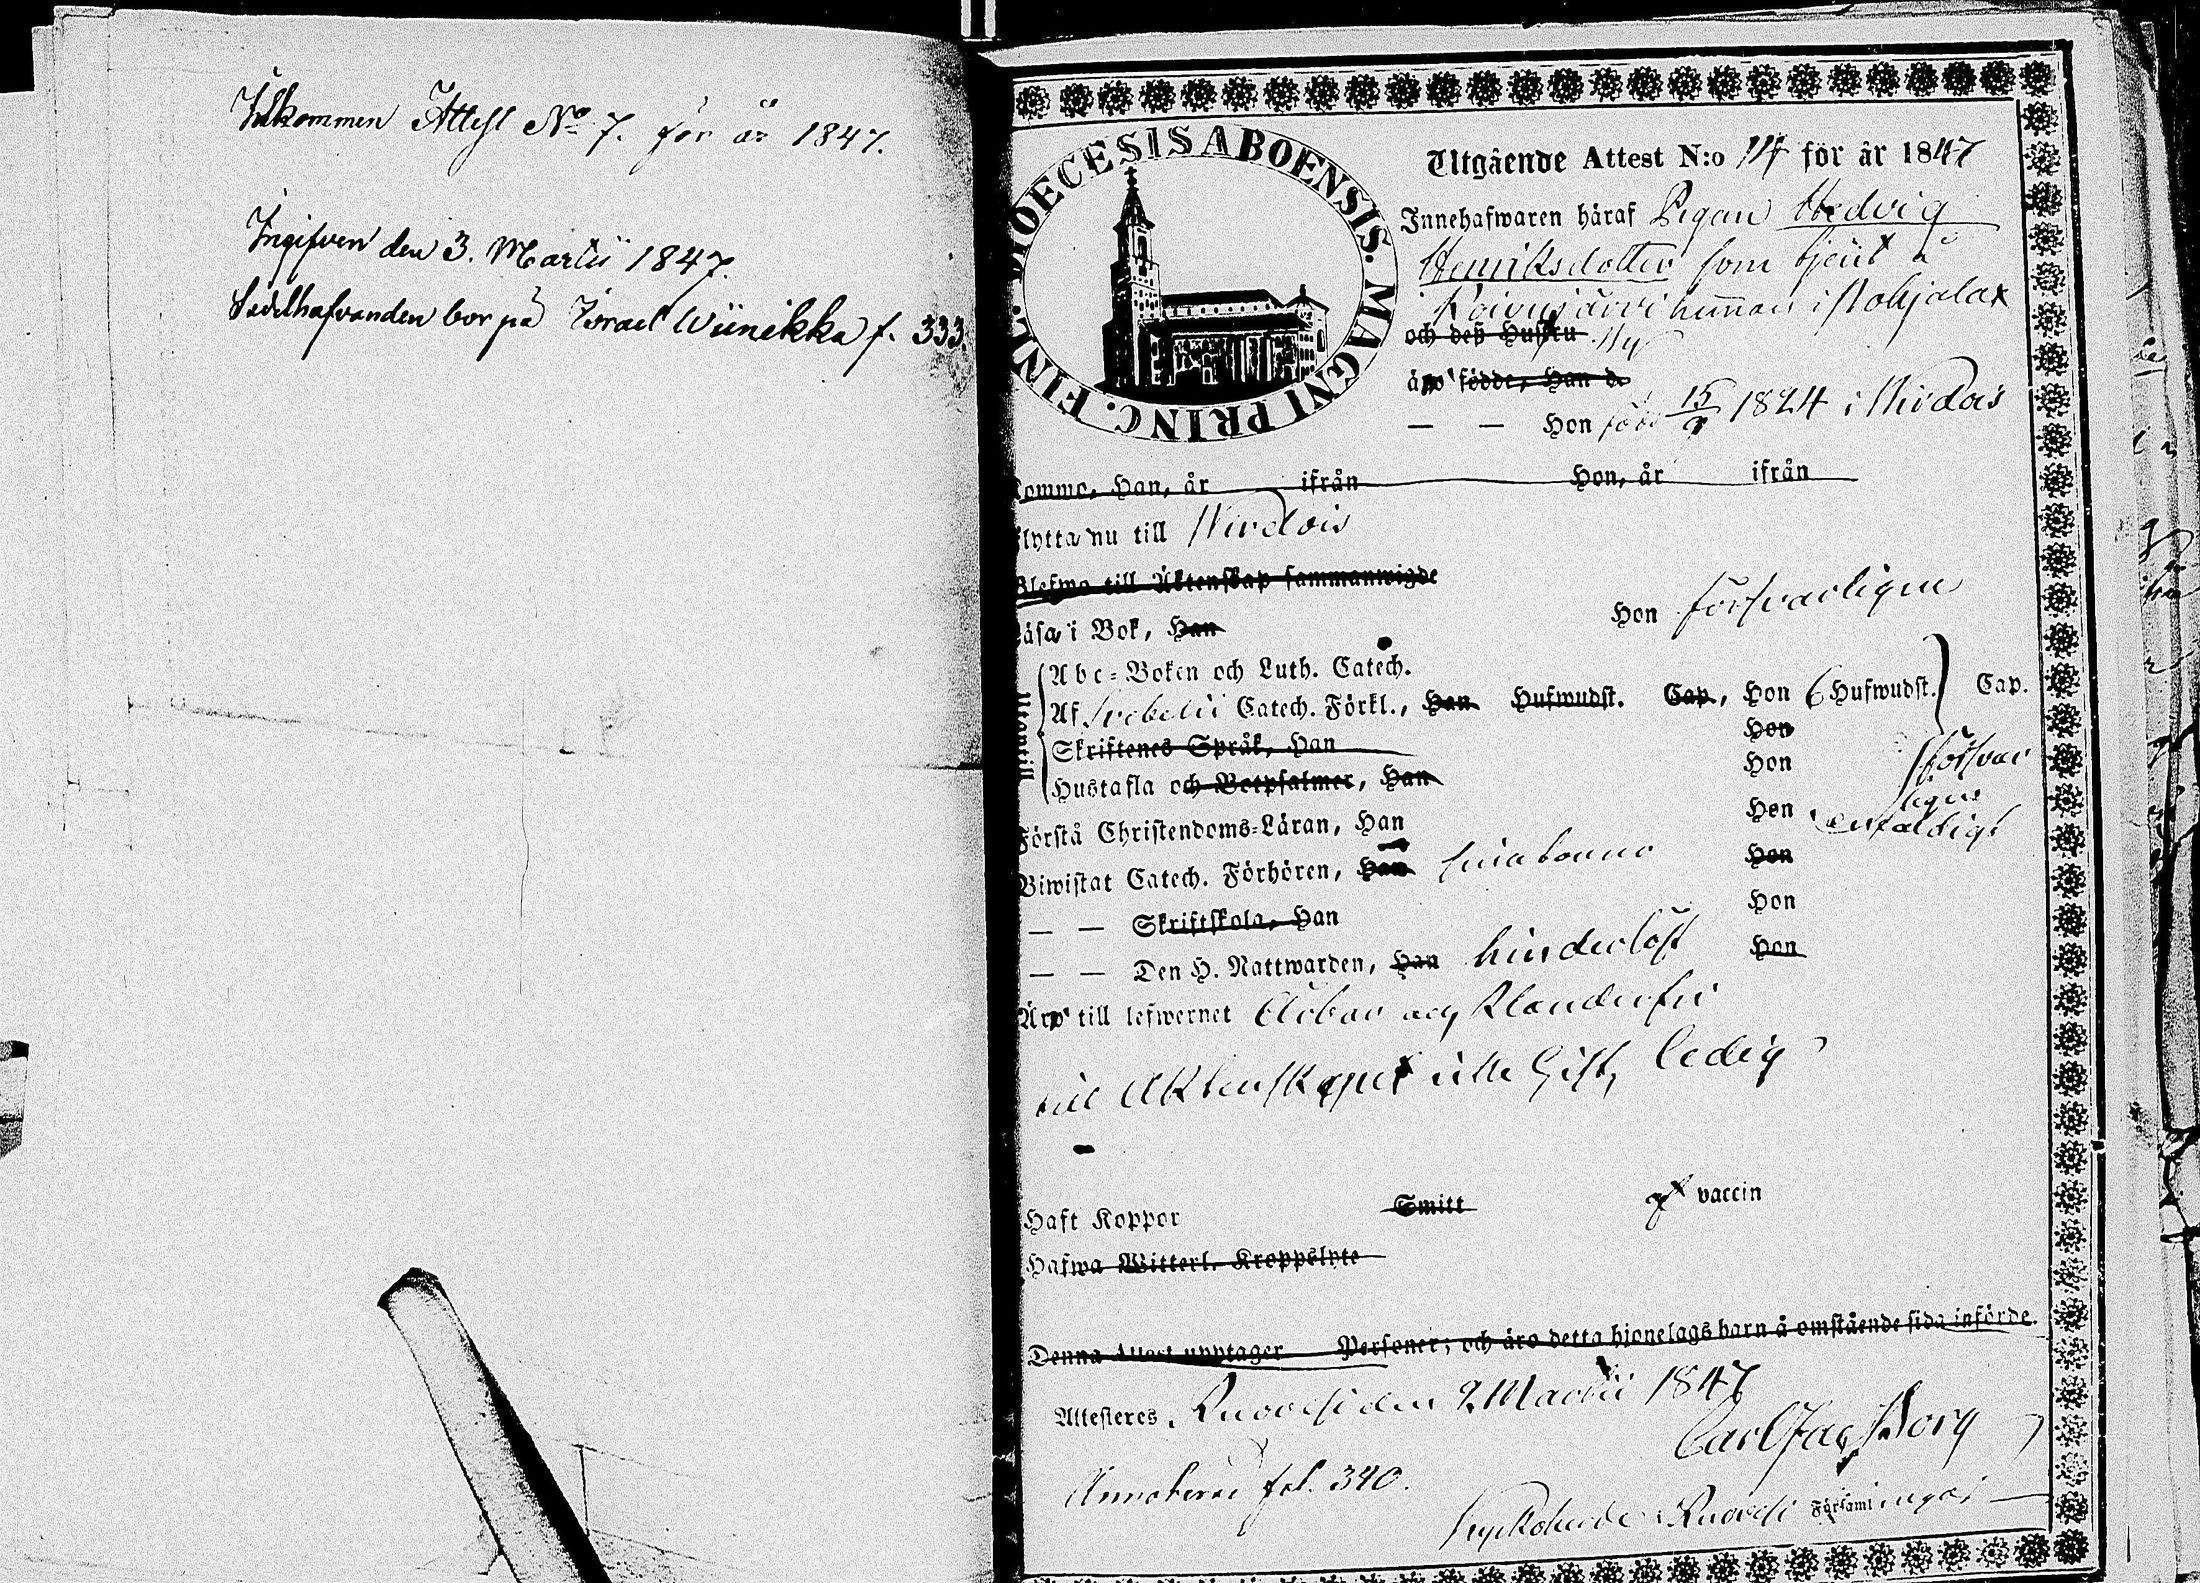 Inkommen Attest No 7. för år 1847.
Ingifven den 3. Martii 1847.
Sedelhafvanden bor på Israel Wiinikka f. 333.
DIOECESIS ABOENSIS. MAGNI PRINC. FINL.
Utgående Attest N:o 114 för år 1847
Innehafwaren häraf Pigan Hedvig
Henriksdotter som tjent å
Koivujärvi hemman i Pohjalax
och deß Hustru
äro födde, Han d.
— — Hon född 15/9 1824 i Wirdois
Komme, Han, år ifrån Hon, år ifrån
Flytta nu till Wirdois
Blefwo till Äktenskap sammanwigde
Läsa i Bok, Han Hon försvarligen
Utantill
Abc-Boken och Luth. Catech.
Af Svebelii Catech. Förkl., Han Hufwudst. Cap., Hon 6 Hufwudst. Cap.
Skriftenes Språk, Han Hon
Hustafla och Botpsalmer, Han Hon försvar
ligen
Förstå Christendoms-Läran, Han Hon enfaldigt
Biwistat Catech. Förhören, Han Hon
— — Skriftskola, Han Hon
— — Den H. Nattwarden, Han hinderlöst Hon
Äro till lefwernet ärbar och klanderfri
till Äktenskapet icke Gift, ledig
Haft Koppor Smitt vaccin
Hafwa Witterl. Kroppslyte
Denna Attest upptager Personer; och äro detta hjonelags barn å omstående sida införde.
Attesteres, Ruovesi den 2 Martii 1847
Carl Jac. Borg
fol. 340.
Kyrkoherde i Ruovesi Församlingar